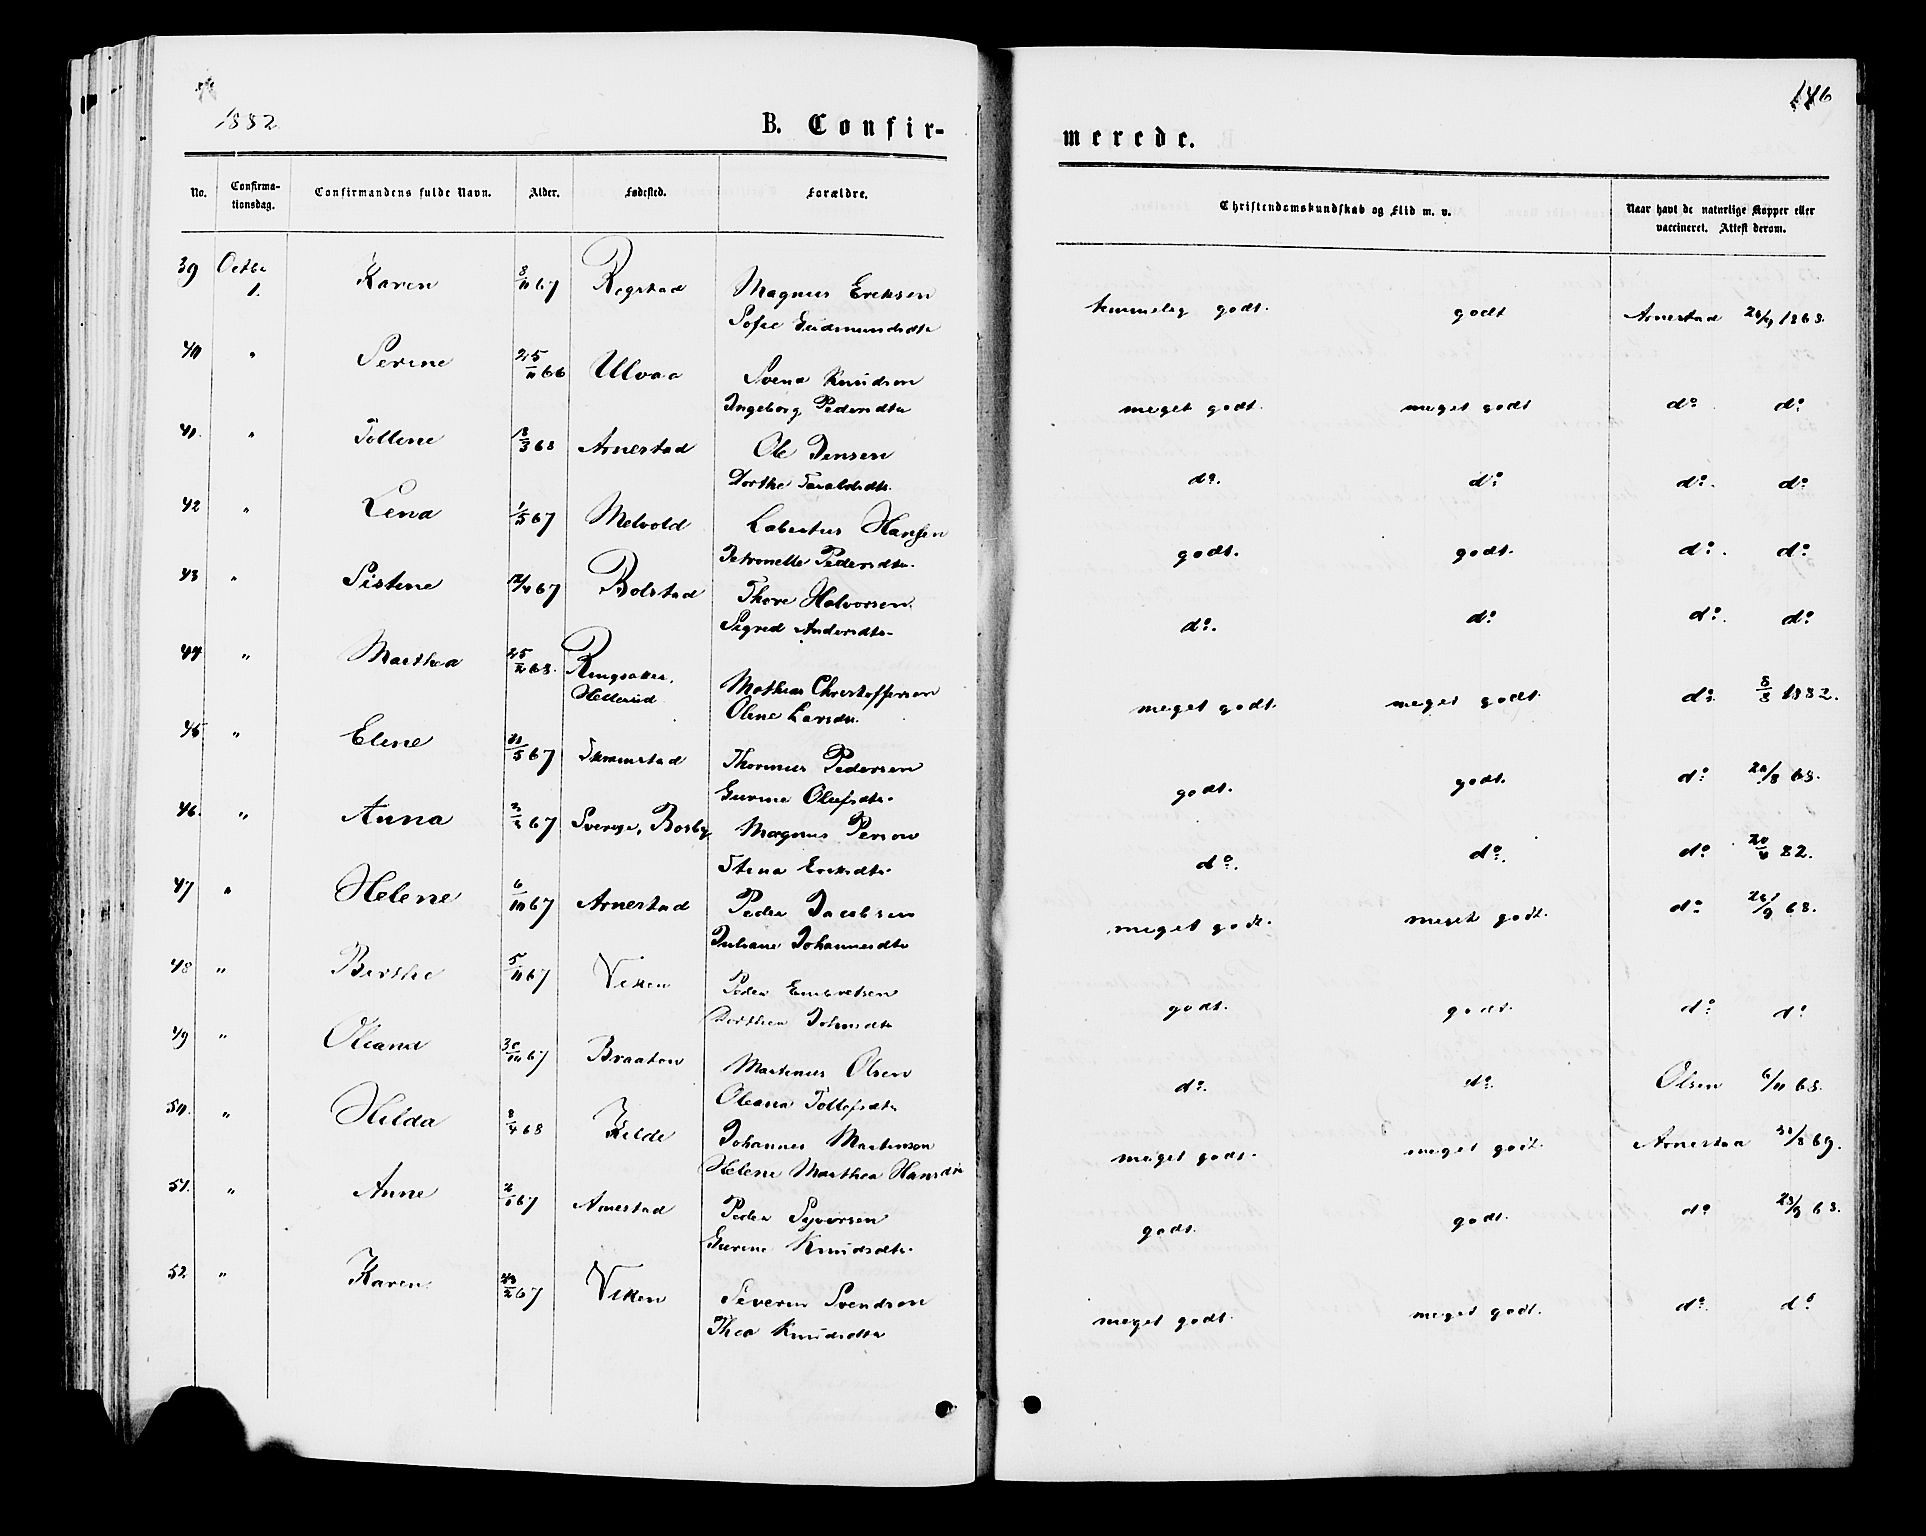 1882
B. Confir-
merede.
186
No.
Confirma-
tionsdag.
Confirmandens fulde Navn.
Alder.
Fødested.
Forældre.
Christendomskundskab og Flid m. v.
Naar havt de naturlige Kopper eller
vaccineret. Attest derom.
39 Octbr 1. Karen 8/11 67 Rogstad Magnus Eriksen
Sofie Gudmundsdtr
temmelig godt. godt Arnestad 1868.
40 " Serine 25/11 66 Ulvaa Svend Knudsen
Ingeborg Pedersdtr
meget godt. meget godt do. do.
41. " Tolline 68 Arnestad Ole Jensen
Dorthe
do. do. do. do.
42 " Lena 67 Melvold Labertus Hansen
Petronelle Pedersdtr.
godt. godt. do. do.
43 " Sistine 67 Bolstad Thore Halvorsen
Sigrid Andersdtr.
do. do. do. do.
44 " Marthea 25/2 68. Ringsaker,
Hellerud Mathias Christoffersen
Oline Larsdtr.
meget godt. meget godt. do. 8/3 1882.
45 " Eline 67 Skramstad Thormus Pedersen
Gurine Olufsdtr.
godt. godt. do. 68.
46. " Anna 67 Sverige, Bosby Magnus Person
Stina Eriksdtr.
do. do. do. 82.
47 " Helene 6/10 67 Arnestad Peder Jacobsen
Juliane Johannesdtr
meget godt. meget godt. do. 68.
48 " Berthe 5/11 67 Viken Peder Embretsen
Dorthea Johnsdtr
godt. godt. do. do.
49 " Oliana 30/10 67 Braaten Martinus Olsen
Oleana Tollefsdtr
do. do. Olsen 6/11 68.
50. " Hilda 8/4 68 Kilde Johannes Martinsen
Helene Marthea Hansdtr
meget godt. meget godt. Arnestad 69.
51. " Anne 67 Arnestad Peder Syversen
Gurine Knudsdtr.
godt. godt. do. 68.
52 " Karen 67 Viken Severin Svendsen
Thea Knudsdtr
meget godt. meget godt. do. do.